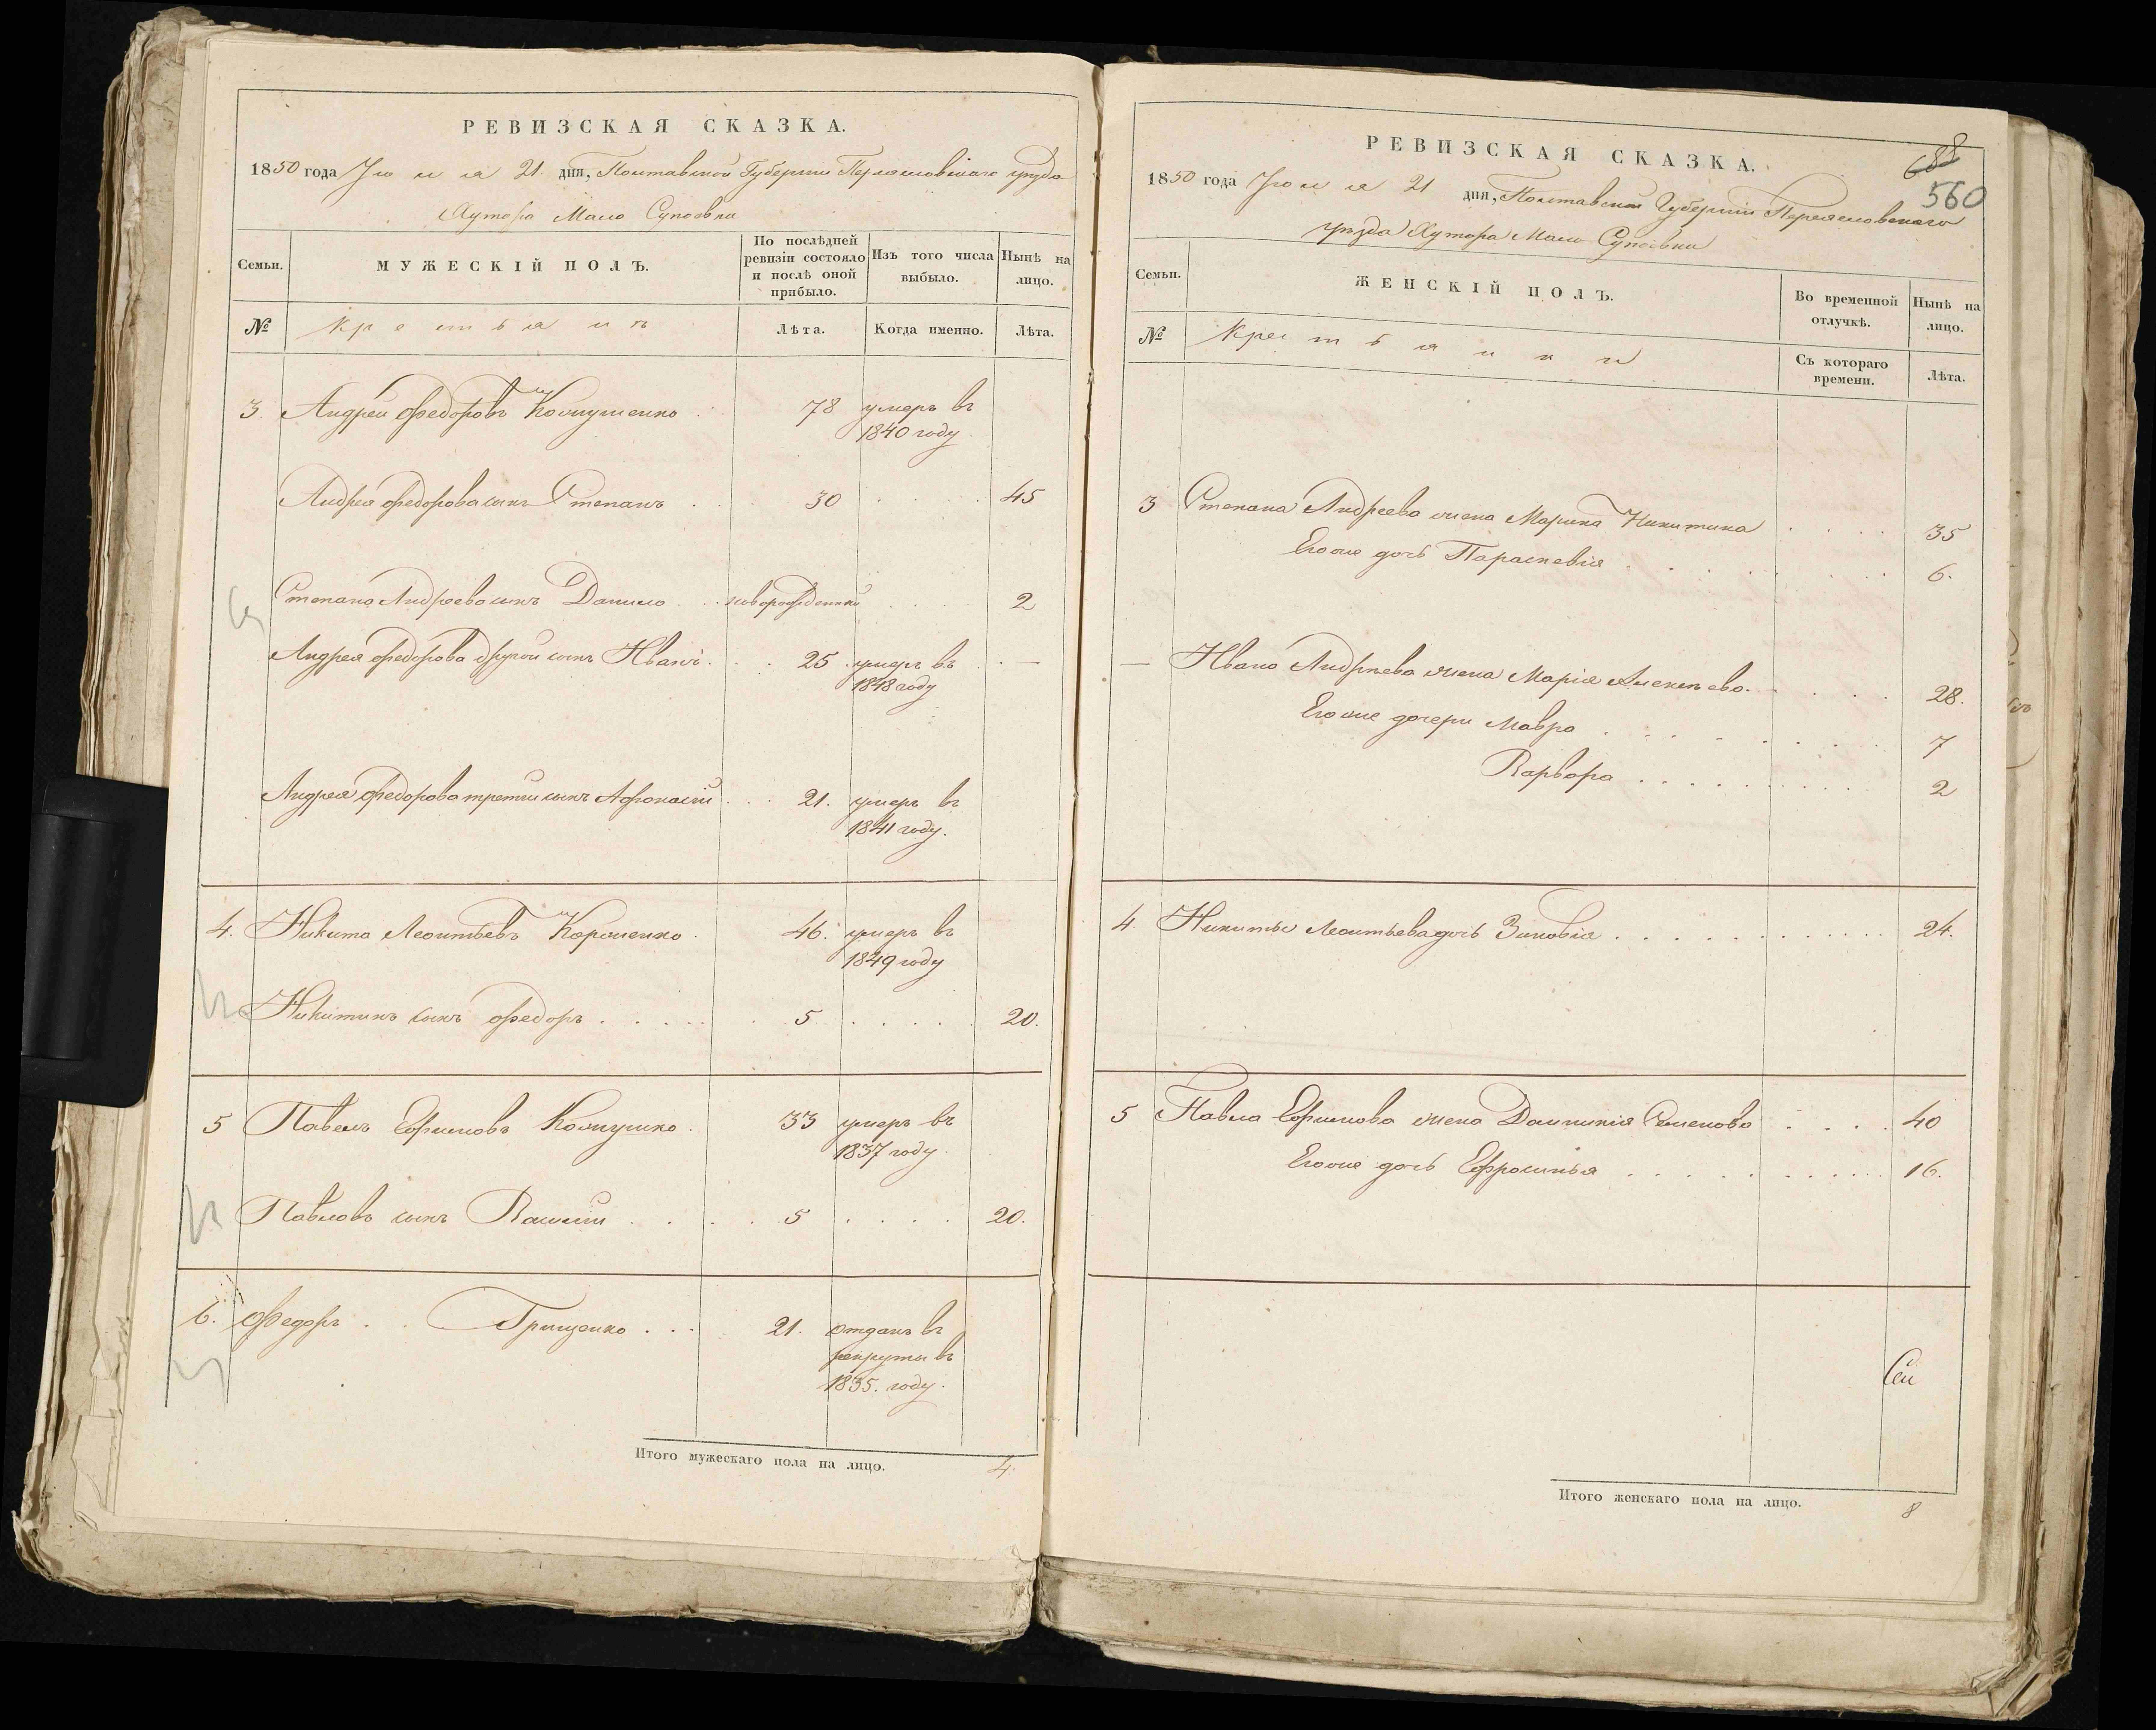 РЕВИЗСКАЯ СКАЗКА.
1850 года Июля 21 дня, Полтавской Губернии Переяславскаго уезда
Хутора Мало Супоевки
Семьи.
МУЖЕСКІЙ ПОЛЪ.
По послѣдней ревизіи состояло и послѣ оной прибыло.
Изъ того числа выбыло.
Нынѣ на лицо.
№
Крестьянъ
Лѣта.
Когда именно.
Лѣта.
3. Андрей Федоровъ 78 умеръ въ
1840 году
Андрея Федорова сынъ Степанъ 30 45
Степана Андреева сынъ Данило новорожденный 2
Андрея Федорова другой сынъ Иванъ 25 умеръ въ
1848 году
Андрея Федорова третій сынъ Афонасій 21. умеръ въ
1841 году.
4. Никита Леонтьевъ 46. умеръ въ
1849 году
Никитинъ сынъ Федоръ 5 20.
5 Павелъ Ефимовъ 33 умеръ въ
1837 году
Павловъ сынъ Василій 5 20.
6. Федоръ Грищенко 21. отданъ въ
рекруты въ
1835. году.
Итого мужескаго пола на лицо. 4
688
560
РЕВИЗСКАЯ СКАЗКА.
1850 года Июля 21 дня, Полтавской Губерніи Переяславскаго
уезда Хутора Мало Супоевки
Семьи.
ЖЕНСКІЙ ПОЛЪ.
Во временной отлучкѣ.
Нынѣ на лицо.
№
Крестьянки
Съ котораго времени.
Лѣта.
3 Степана Андреева жена Марина Никитина 35
Егоже дочь Параскевія 6.
Ивана Андреева жена Марія 28.
Егоже дочери Мавра 7
Варвара 2
4. Никиты Леонтьева дочь Зиновія 24.
5 Павла Ефимова жена Домникія Семенова 40
Егоже дочь Ефросинья 16.
Итого женскаго пола на лицо. 8